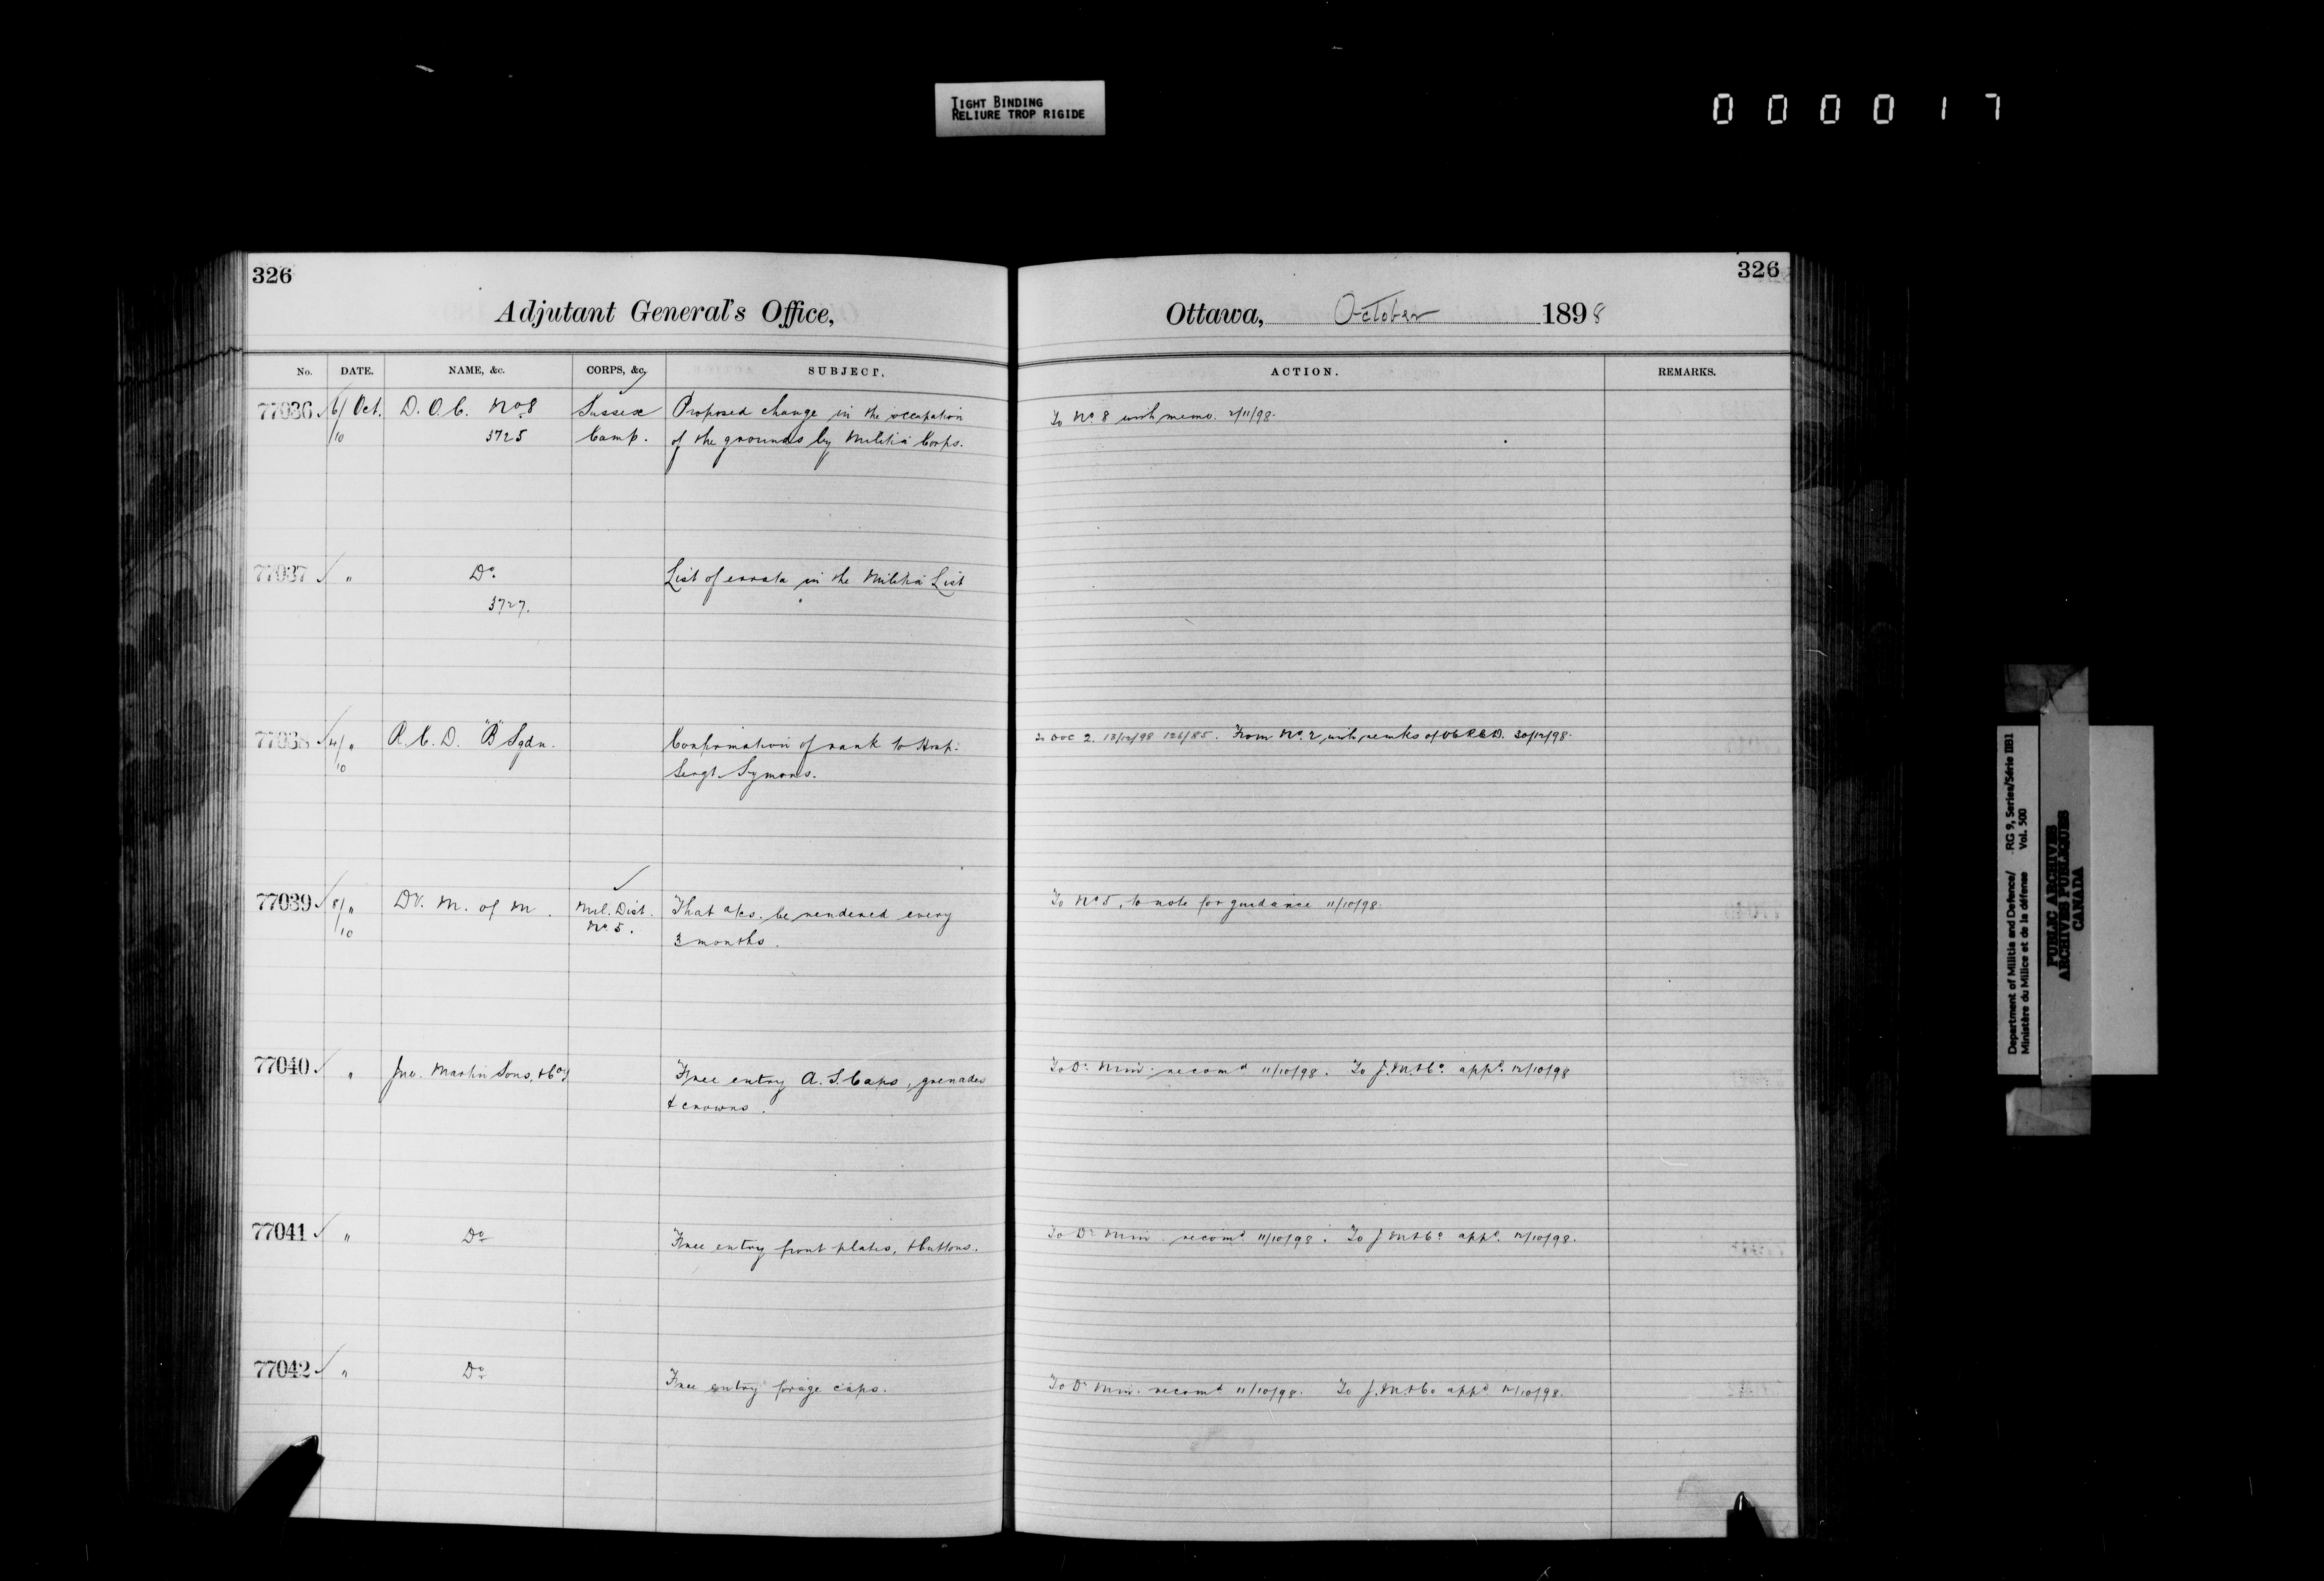 TIGHT BINDING
RELIURE TROP RIGIDE
000017
326
Adjutant General's Office,
No. DATE. NAME, &c. CORPS, &c. SUBJECT.
77036 6/10 Oct. D.O.C. No 8 Sussex Proposed change in the occupation
3725 Camp. of the grounds by Militia Corps.
77037 " Do. List of errata in the Militia List
3727.
77038 4/10 " R.C.D. "B" Sqdn. Confirmation of rank to Hosp.
Sergt. Symons.
77039 8/10 " Dy. M. of M. Mil. Dist. That a/cs. be rendered every
No 5. 3 months.
77040 " Jno. Martin Sons, & Co Free entry A.S. Caps, grenades
& crowns.
77041 " Do Free entry front plates, & buttons.
77042 " Do Free entry forage caps.
326
Ottawa, October 1898
ACTION. REMARKS.
To No. 8 with memo. 2/11/98.
To DOC 2. 13/12/98 126/85. From No. 2 with remks of OC RCD. 20/12/98.
To No 5, to note for guidance 11/10/98.
To Dy. Min. recomd 11/10/98. To J.M. & Co. appd. 12/10/98
To Dy. Min. recomd. 11/10/98. To J.M. & Co. appd. 12/10/98.
To Dy. Min. recomd 11/10/98. To J.M. & Co appd 12/10/98.
Department of Militia and Defence/ RG 9, Series/Série IIB1
Ministère du Milice et de la défense Vol. 500
PUBLIC ARCHIVES
ARCHIVES PUBLIQUES
CANADA